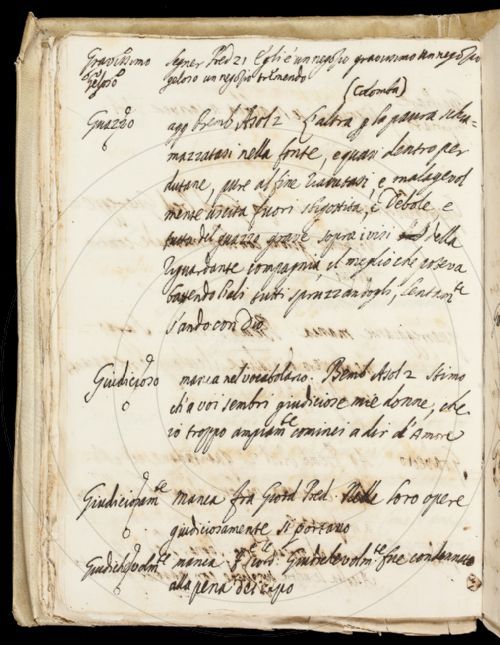 Gravissimo Segner Pred 21 Egli è un negozio gravissimo un negozio
Geloso geloso un negozio tremendo
(Colomba)
Guazzo agg Bemb Asol 2 L'altra p la paura schia=
mazzatasi nella fonte, e quasi dentro per
dutane, pure al fine riavutasi, e malagevol
mente uscita fuori sbigottita, e debole, e
tutta del guazzo grave sopra i visi della
riguardante compagnia, il meglio che poteva
battendo l'ali tutti spruzzandogli,
s'andò con Dio
Giudicioso manca nel vocabolario. Bemb Asol 2 Stimo
ch'a voi sembri giudiciose mie donne, che
io troppo ampiamte cominci a dir d'Amore
Giudiciosamte manca fra Giord Pred Nelle loro opere
giudiciosamente si portano
manca fue condannato
alla pena del capo